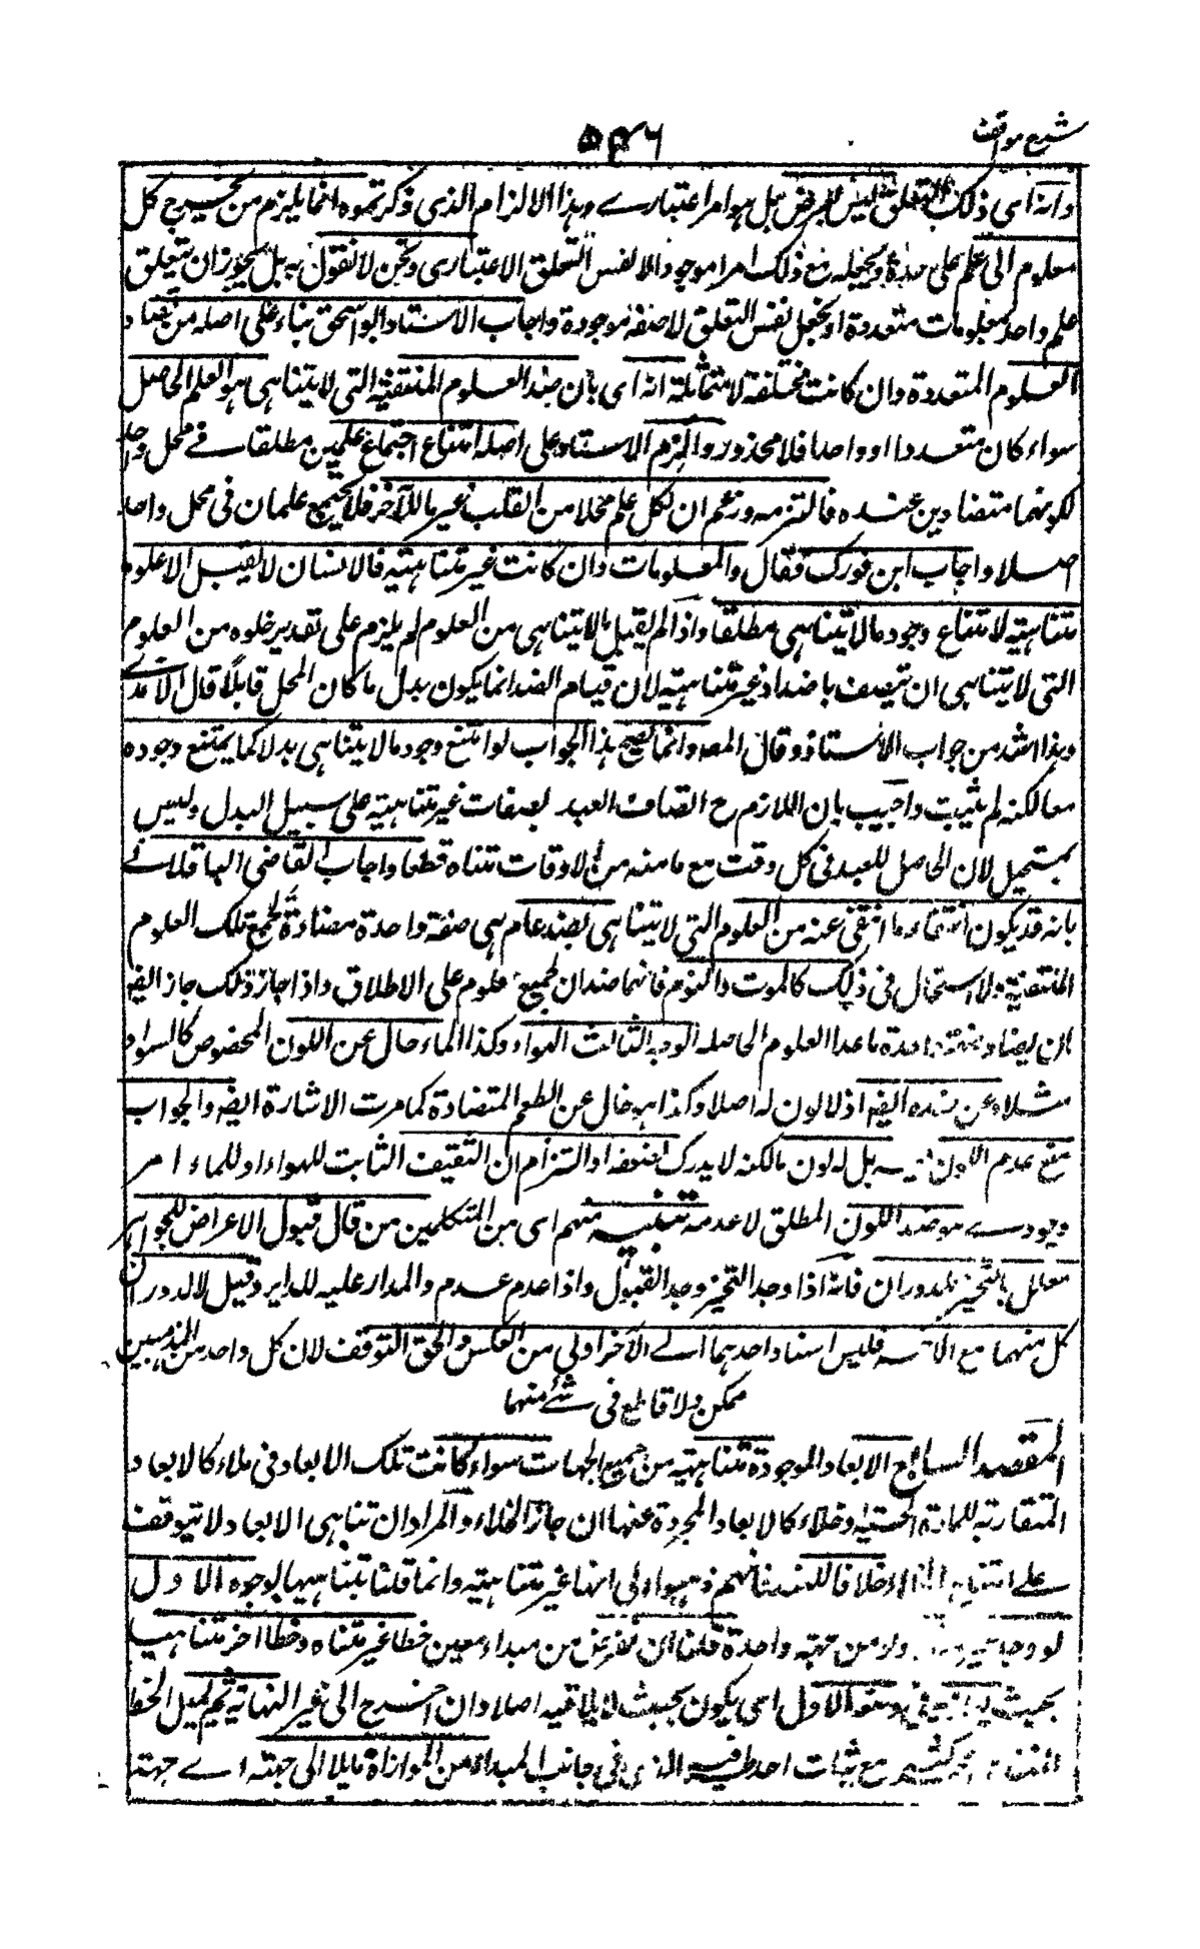 شرح مواقف
۵۴۶
وانه اى ذلك التعلق ليس بعرض بل هو امر اعتبارے وهذا الالزام الذى ذكرتموه انما يلزم من يحوج كل
معلوم الى علم على حدة ويجعله مع ذلك امرا موجودا لا نفس التعلق الاعتبارى ونحن لا نقول به بل يجوز ان يتعلق
علم واحد بمعلومات متعددة او نجعل نفس التعلق لا صفة موجودة واجاب الاستاد ابو اسحق بناء على اصله من تضاد
العلوم المتعددة وان كانت مختلفة لا متماثلة انه اى بان ضد العلوم المنتفية التى لا يتناهى هو العلم الحاصل
سواء كان متعددا او واحدا فلا محذور والزم الاستاد على اصله امتناع اجتماع علمين مطلقا فے محل واحد
لكونهما متضادين عنده فالتزمه وزعم ان لكل علم محلا من القلب غير ما للآخر فلا يجتمع علمان فى محل واحد
اصلا واجاب ابن فورك فقال والمعلومات وان كانت غير متناهية فالانسان لا يقبل الا علوما
متناهية لامتناع وجود ما لا يتناهى مطلقا واذا لم يقبل ما لا يتناهى من العلوم لم يلزم على تقدير خلوه من العلوم
التى لا يتناهى ان يتصف باضداد غير متناهية لان قيام الضد انما يكون بدل ما كان المحل قابلاً قال الآمدے
وهذا اشد من جواب الاستاذ وقال المصـ وانما يصح هذا الجواب لو امتنع وجود ما لا يتناهى بدلا كما يمتنع وجوده
معا لكنه لم يثبت واجيب بان اللازم ح اتصاف العبد بصفات غير متناهية على سبيل البدل وليس
بمستحيل لان الحاصل للعبد فى كل وقت مع ما منه من الاوقات متناه قطعا واجاب القاضى الباقلانے
بانه قد يكون انتفاء ما انتفى عنه من العلوم التى لا يتناهى بضد عام هى صفة واحدة مضادة لجميع تلك العلوم
المنتفية ولا استحال فى ذلك كالموت والنوم فانهما ضدان لجميع العلوم على الاطلاق واذا جاز ذلك جاز ايضا
ان يضاد صفة واحدة ما عدا العلوم الحاصلة الوجه الثالث الهواء وكذا الماء خال عن اللون المخصوص كالسواد
مثلا وعن ضده ايضا اذ لا لون له اصلا وكذا هو خال عن الطعم المتضادة كما مرت الاشارة ايضا والجواب
منع عدم اللون بل له لون ما لكنه لا يدرك لضعفه او التزام ان الشفيف الثابت للهواء او للماء امر
وجودے هو ضد اللون المطلق لا عدمه تنبيه منهم اى من المتكلمين من قال قبول الاعراض للجواهر
معلل بالتحيز للدوران فانه اذا وجد التحيز وجد القبول واذا عدم عدم والمدار عليه للداير وقيل لا لدوران
كل منهما مع الآخر فليس اسناد احدهما الے الآخر اولى من العكس والحق التوقف لان كل واحد من المذهبين
ممكن ولا قاطع فى شئ منهما
المقصد السابع الابعاد الموجودة متناهية من جميع الجهات سواء كانت تلك الابعاد فى ملاء كالابعاد
المتقارنة للمادة الجسمية وخلاء كالابعاد المجردة عنها ان جاز الخلاء والمراد ان تناهى الابعاد لا يتوقف
علے امتناع الخلاء خلافا للهند فانهم ذهبوا الى انها غير متناهية وانما قلنا بتناهيها لوجوه الاول
لو وجد ولو من جهة واحدة فلنا ان نفرض من مبداء معين خطا غير متناه وخطا اخر متناهيا
بحيث الاول اى يكون بحيث لا يلاقيه اصلا وان اخرج الى غير النهاية ثم يميل الخط
مع ثبات احد طرفيه الذى فى جانب المبداء من الموازاة مايلا الى جهته اے جهة